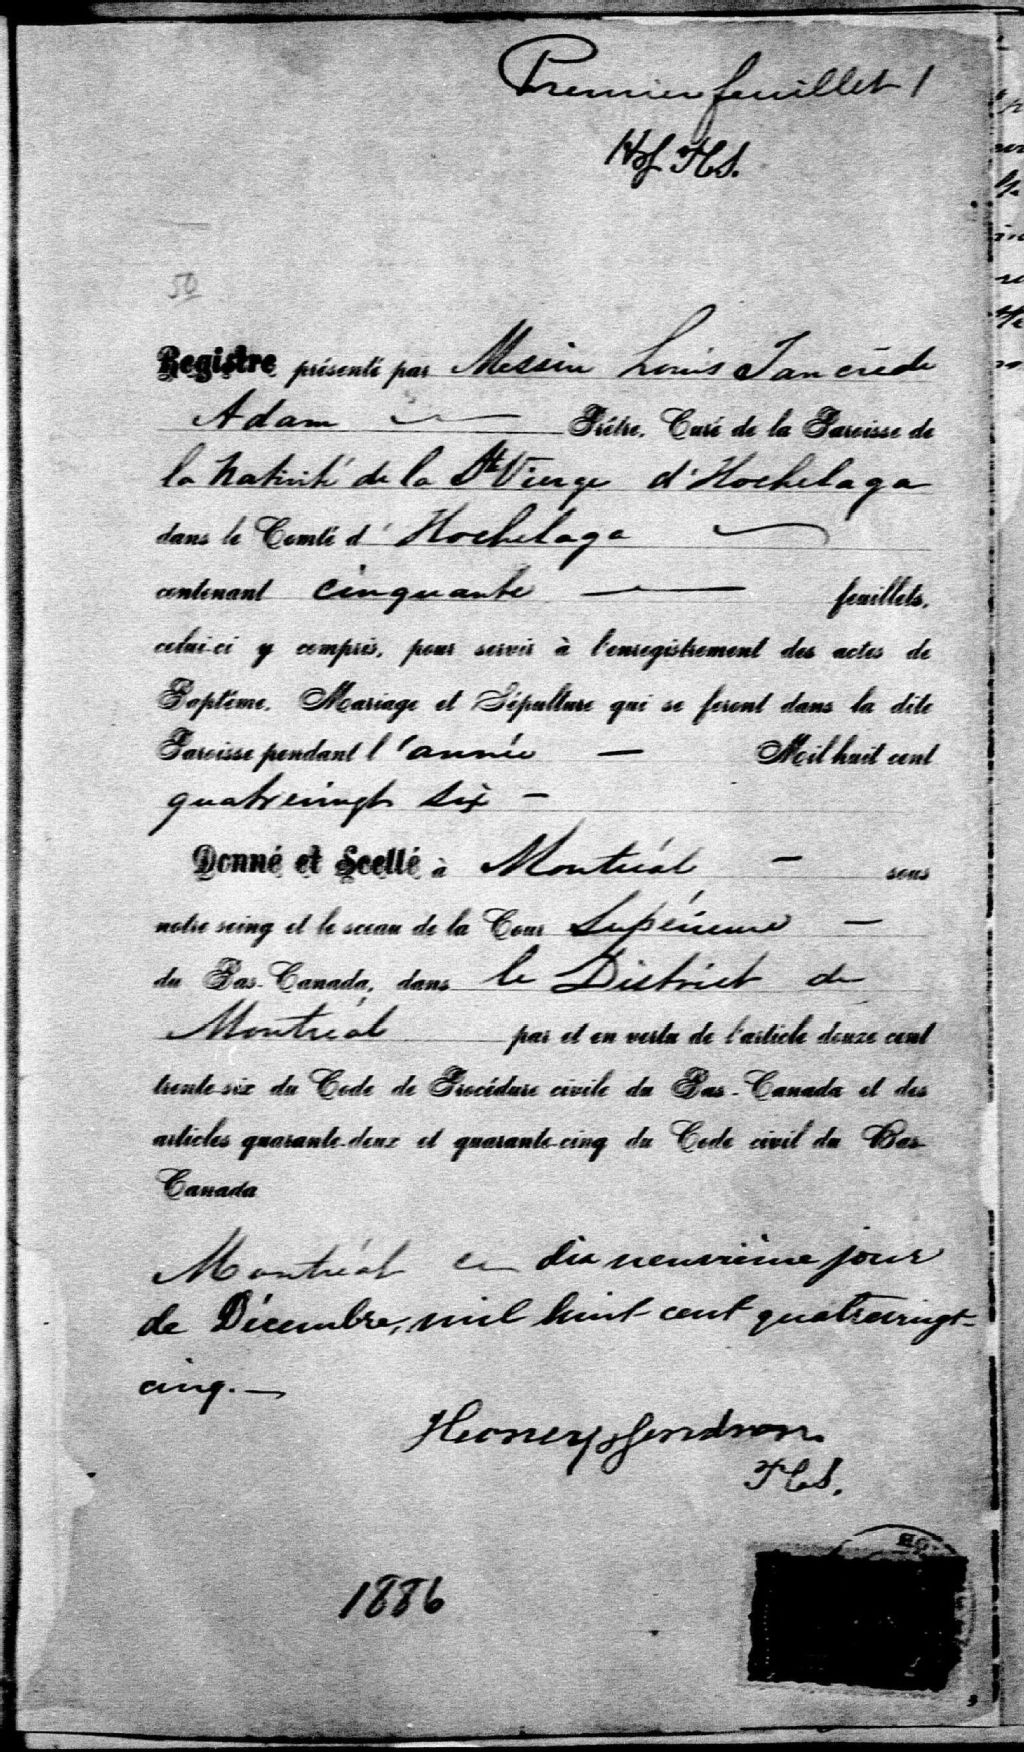 Premier feuillet 1
HG PCS.
50
Registre présenté par Messire Louis Tancrède
Adam Prêtre, Curé de la Paroisse de
la Nativité de la Ste Vierge d'Hochelaga
dans le Comté d'Hochelaga
contenant cinquante feuillets,
celui-ci y compris, pour servir à l'enregistrement des actes de
Baptême, Mariage et Sépulture qui se feront dans la dite
Paroisse pendant l'année Mil huit cent
quatrevingt six
Donné et Scellé à Montréal sous
notre seing et le sceau de la Cour Supérieure
du Bas-Canada, dans le District de
Montréal par et en vertu de l'article douze cent
trente-six du Code de Procédure civile du Bas-Canada et des
articles quarante-deux et quarante-cinq du Code civil du Bas
Canada
Montréal ce dix neuvième jour
de Décembre, mil huit cent quatrevingt-
cinq.
Gendron
PCS.
1886